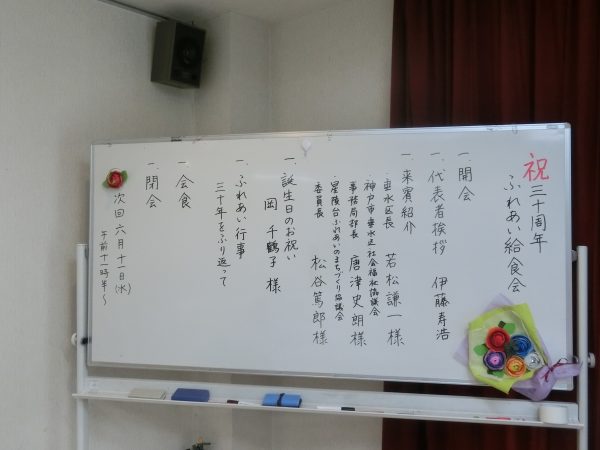 祝 三十周年
ふれあい給食会
一.開会
一.代表者挨拶 伊藤寿浩
一.来賓紹介
・垂水区長 若松謙一様
・神戸市垂水区社会福祉協議会
事務局部長 唐津史朗様
・星陵台ふれあいのまちづくり協議会
委員長 松谷篤郎様
一.誕生日のお祝い
岡 千鶴子 様
一.ふれあい行事
三十年をふり返って
一.会食
一.閉会
次回 六月十一日(水)
午前十一時半〜